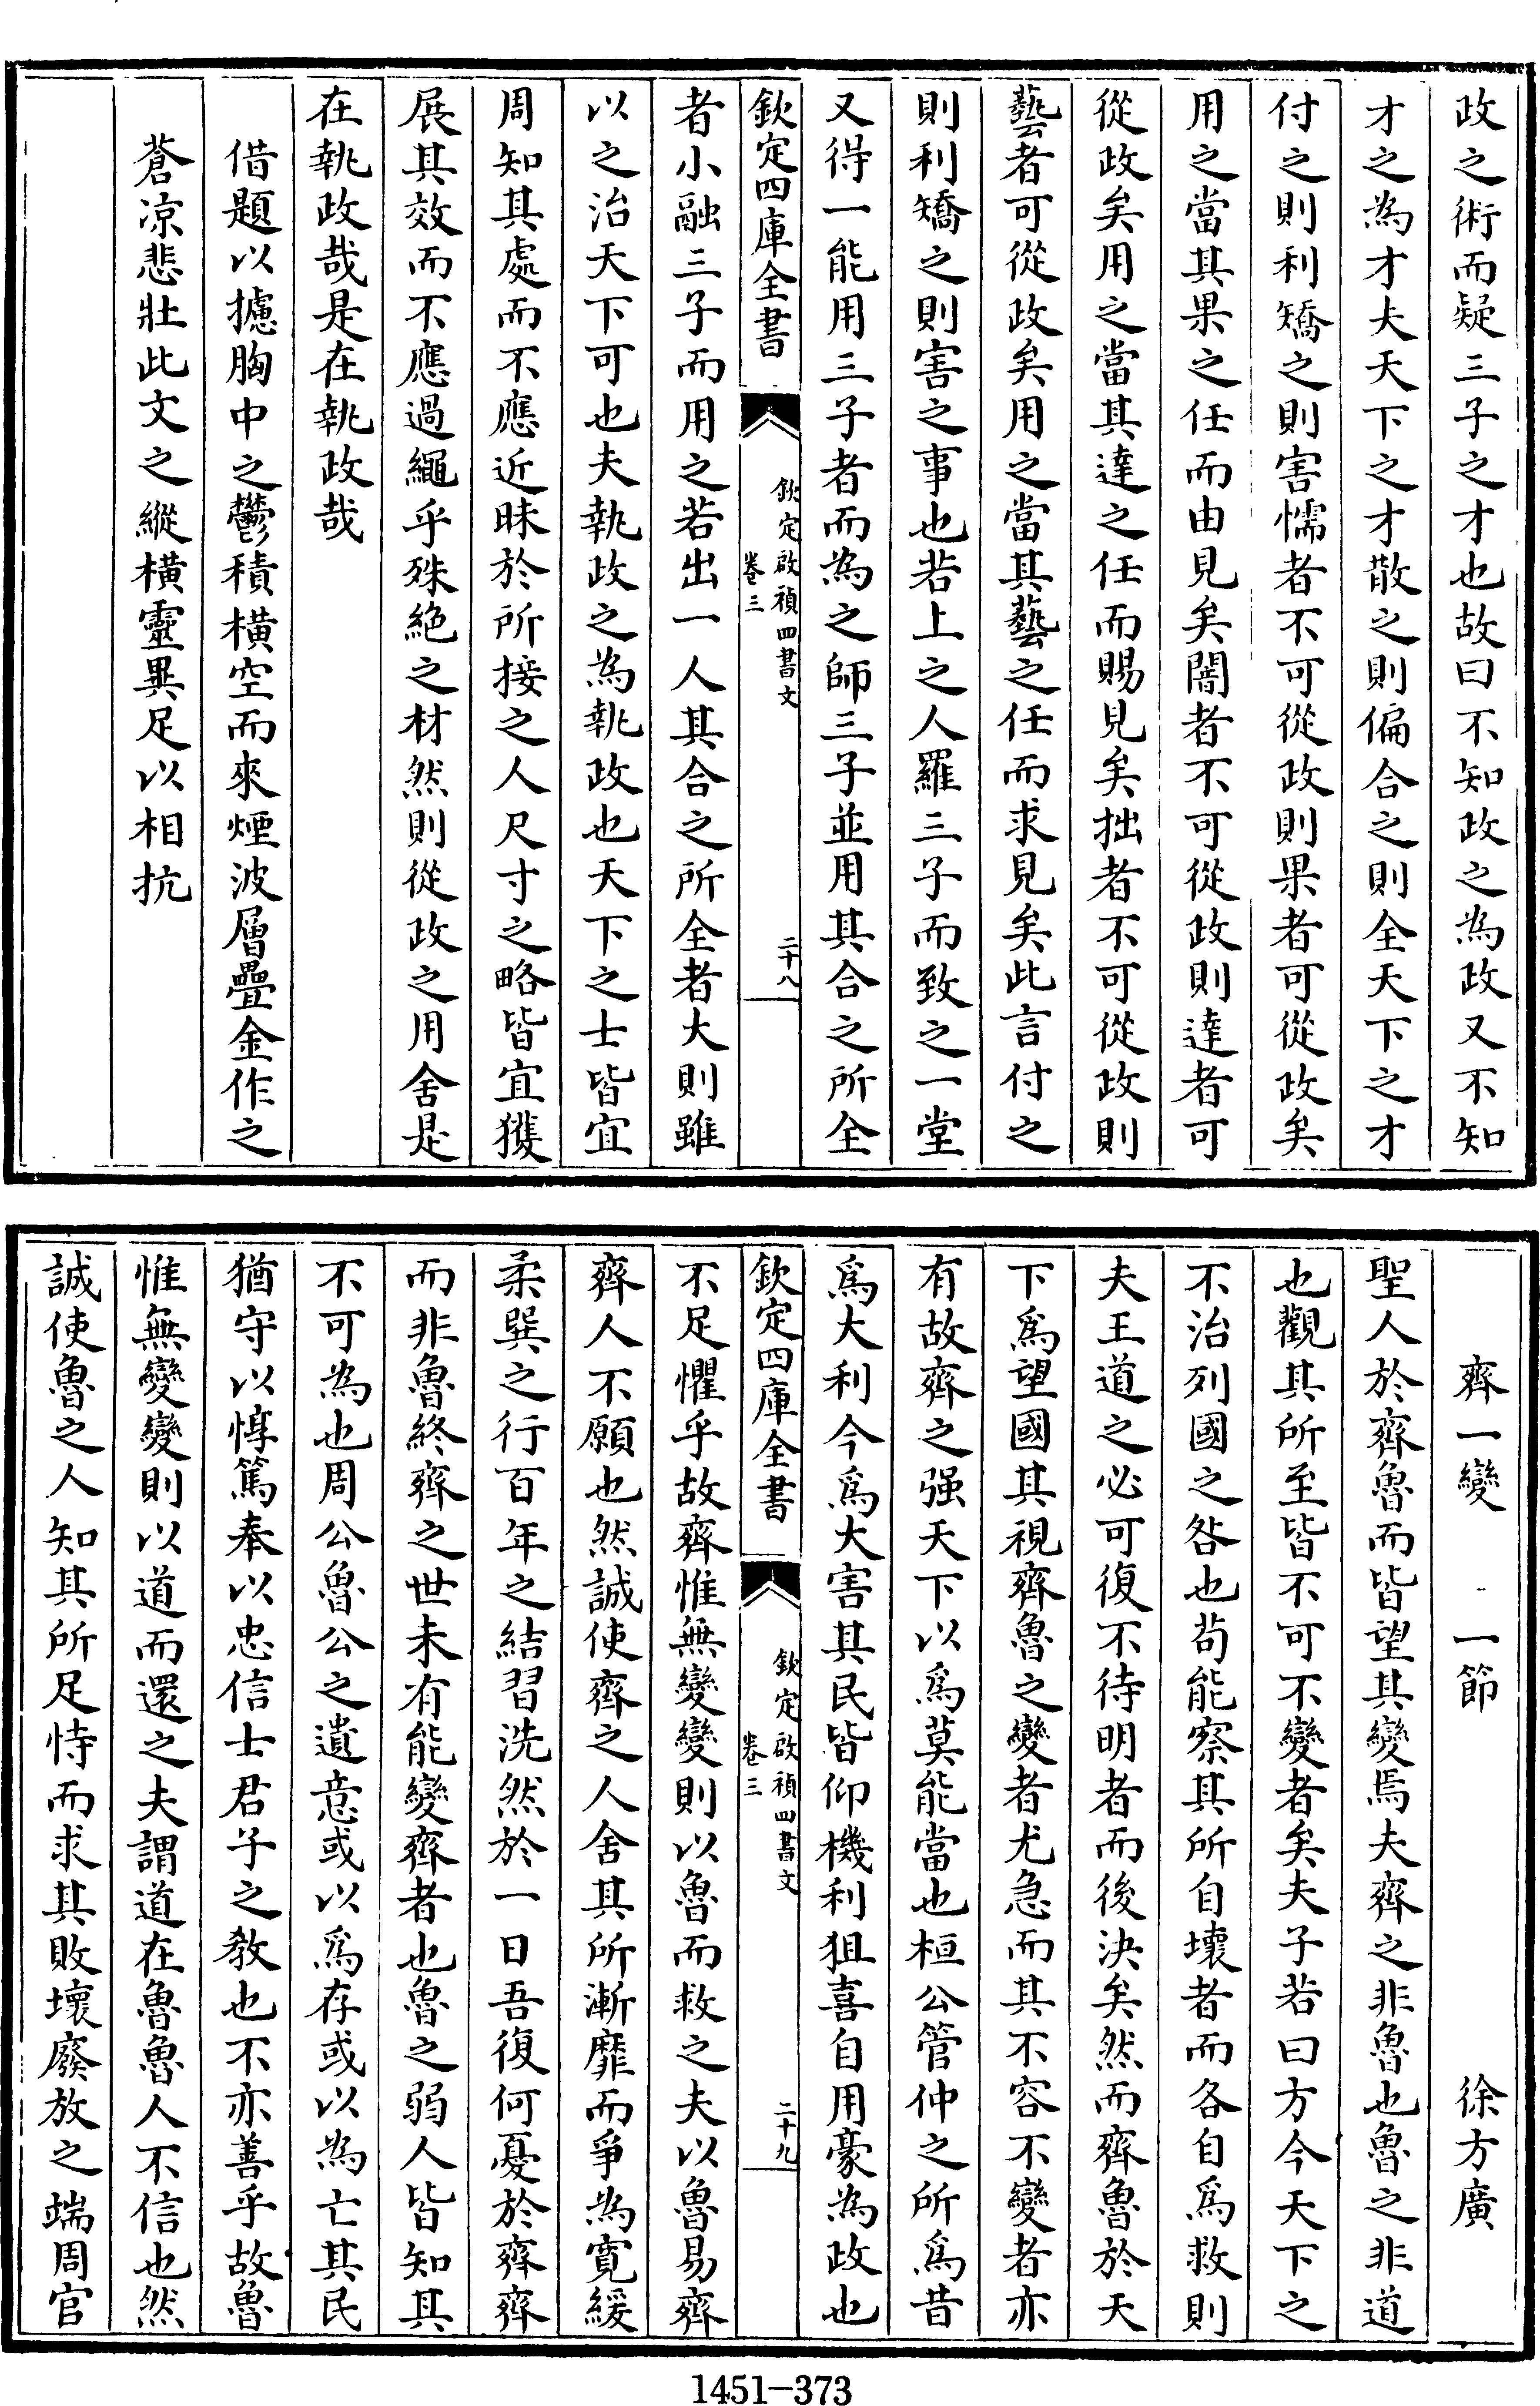 政之術而疑三子之才也故曰不知政之為政又不知
才之為才夫天下之才散之則偏合之則全天下之才
付之則利矯之則害懦者不可從政則果者可從政矣
用之當其果之任而由見矣闇者不可從政則達者可
從政矣用之當其達之任而賜見矣拙者不可從政則
藝者可從政矣用之當其藝之任而求見矣此言付之
則利矯之則害之事也若上之人羅三子而致之一堂
又得一能用三子者而為之師三子並用其合之所全
欽定四庫全書
欽定啟禎四書文
卷三
二十八
者小融三子而用之若出一人其合之所全者大則雖
以之治天下可也夫執政之為執政也天下之士皆宜
周知其處而不應近昧於所接之人尺寸之略皆宜獲
展其效而不應過繩乎殊絶之材然則從政之用舍是
在執政哉是在執政哉
借題以攄胸中之鬱積橫空而來煙波層疊金作之
蒼凉悲壯此文之縱橫靈異足以相抗
齊一變 一節 徐方廣
聖人於齊魯而皆望其變焉夫齊之非魯也魯之非道
也觀其所至皆不可不變者矣夫子若曰方今天下之
不治列國之咎也苟能察其所自壞者而各自爲救則
夫王道之必可復不待明者而後決矣然而齊魯於天
下爲望國其視齊魯之變者尤急而其不容不變者亦
有故齊之强天下以爲莫能當也桓公管仲之所爲昔
爲大利今爲大害其民皆仰機利狙喜自用豪為政也
欽定四庫全書
欽定啟禎四書文
卷三
二十九
不足懼乎故齊惟無變變則以魯而救之夫以魯易齊
齊人不願也然誠使齊之人舍其所漸靡而爭為寛緩
柔巽之行百年之結習洗然於一日吾復何憂於齊齊
而非魯終齊之世未有能變齊者也魯之弱人皆知其
不可為也周公魯公之遺意或以爲存或以為亡其民
猶守以惇篤奉以忠信士君子之教也不亦善乎故魯
惟無變變則以道而還之夫謂道在魯魯人不信也然
誠使魯之人知其所足恃而求其敗壞廢放之端周官
1451-373